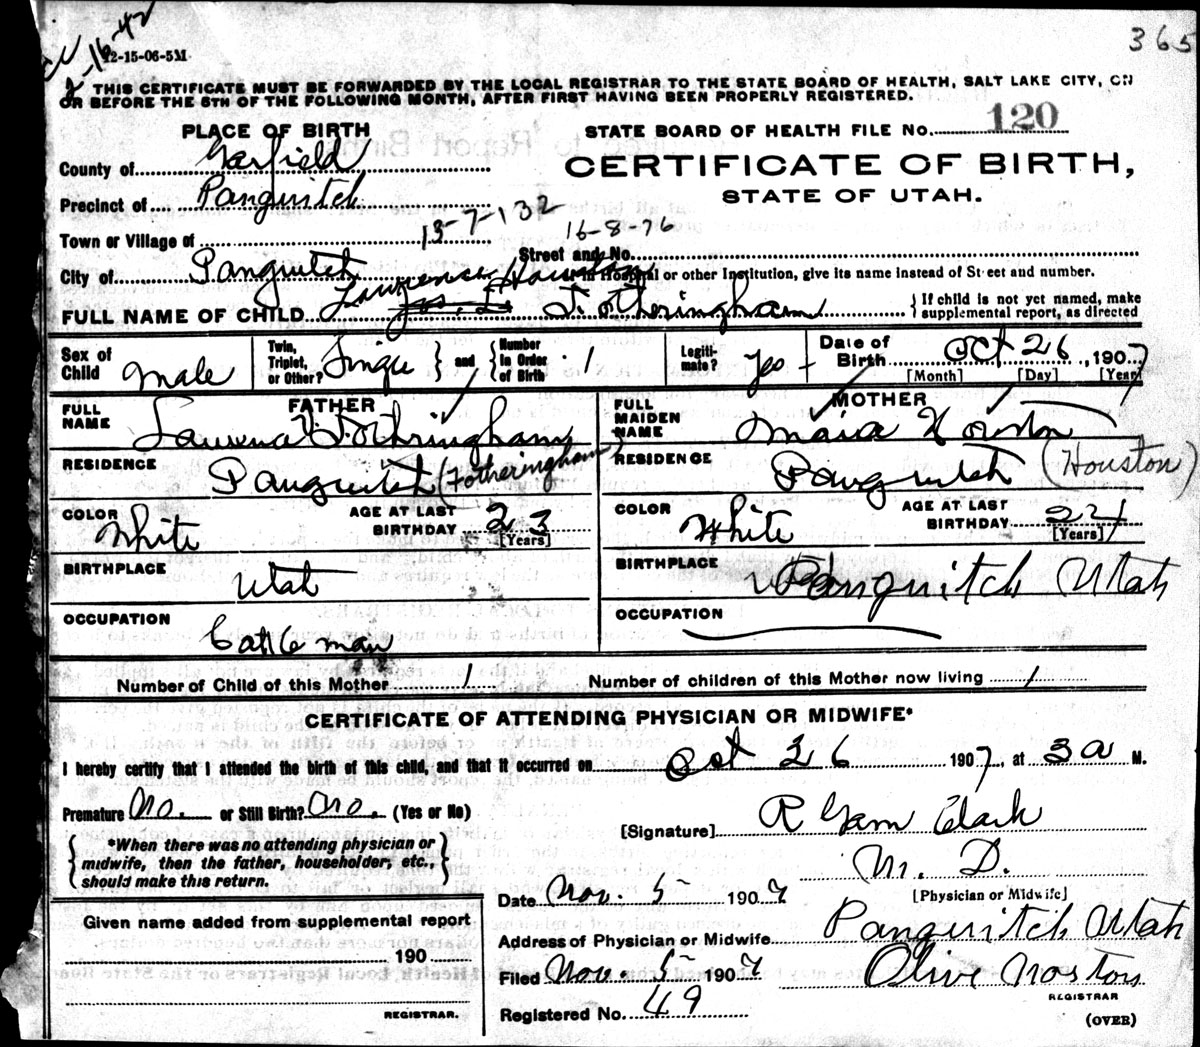 365
2-16-42
12-15-06-5M
THIS CERTIFICATE MUST BE FORWARDED BY THE LOCAL REGISTRAR TO THE STATE BOARD OF HEALTH, SALT LAKE CITY, ON
OR BEFORE THE 5TH OF THE FOLLOWING MONTH, AFTER FIRST HAVING BEEN PROPERLY REGISTERED.
PLACE OF BIRTH
STATE BOARD OF HEALTH FILE NO. 120
County of Garfield
CERTIFICATE OF BIRTH,
Precinct of Panguitch
STATE OF UTAH.
Town or Village of 13-7-132
16-8-76
Street and No.
City of Panguitch
If in Hospital or other Institution, give its name instead of Street and number.
Lawrence Houston
FULL NAME OF CHILD Jas. L. Fotheringham
{If child is not yet named, make supplemental report, as directed
Sex of Child Male
Twin, Triplet, or Other? Single and {Number in Order of Birth 1
Legitimate? Yes
Date of Birth Oct 26, 1907
[Month] [Day] [Year]
FATHER
MOTHER
FULL NAME Fotheringham
FULL MAIDEN NAME
RESIDENCE Panguitch (Fotheringham)
RESIDENCE Panguitch (Houston)
COLOR White
AGE AT LAST BIRTHDAY 23 [Years]
COLOR White
AGE AT LAST BIRTHDAY 24 [Years]
BIRTHPLACE Utah
BIRTHPLACE Panguitch Utah
OCCUPATION Cattle man
OCCUPATION
Number of Child of this Mother 1
Number of children of this Mother now living 1
CERTIFICATE OF ATTENDING PHYSICIAN OR MIDWIFE*
I hereby certify that I attended the birth of this child, and that it occurred on Oct 26 1907, at 3 a M.
Premature No. or Still Birth? No. (Yes or No)
[Signature] R Garn Clark
{*When there was no attending physician or midwife, then the father, householder, etc., should make this return.}
M. D.
[Physician or Midwife]
Date Nov. 5 1907
Given name added from supplemental report
Address of Physician or Midwife Panguitch Utah
190
Filed Nov. 5 1907
Olive
REGISTRAR
REGISTRAR.
Registered No. 49
(OVER)